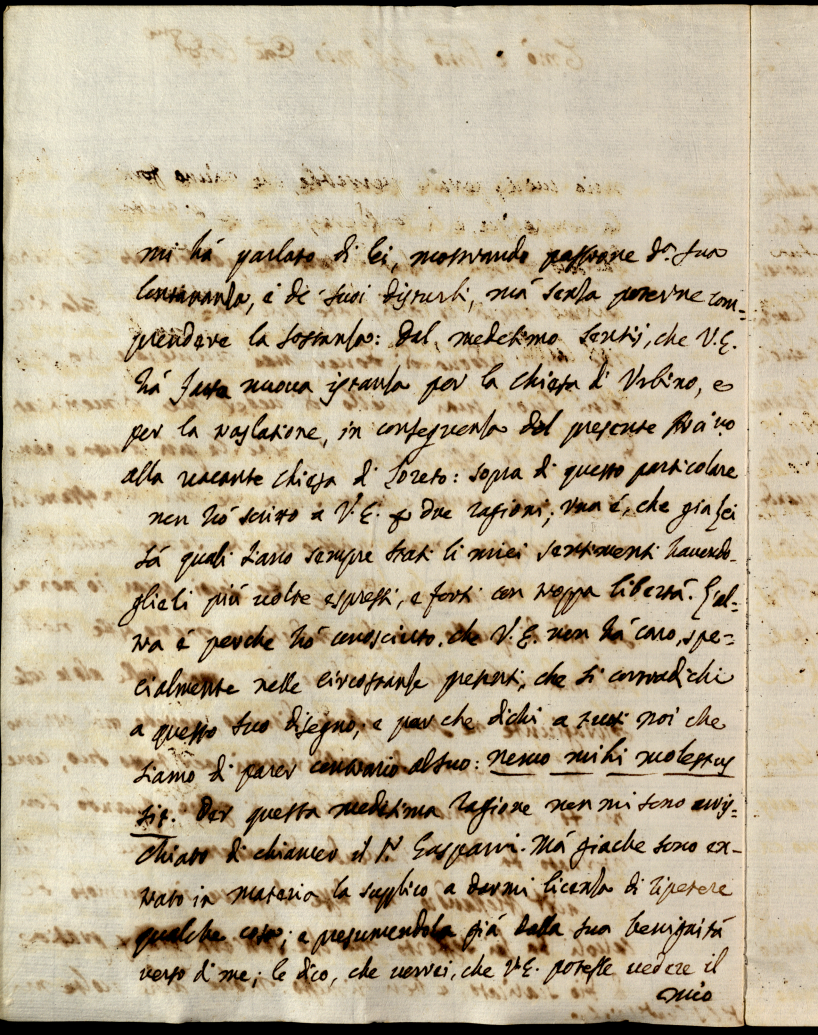 mi hà parlato di lei, mostrando passione d.ª sua
lontananza, e de' suoi disturbi, mà senza poterne com=
prendere la sostanza: dal medesimo sentij, che V.E.
hà fatta nuova istanza per la Chiesa di Urbino, e
per la traslatione, in conseguenza del presente
alla vacante Chiesa di Loreto: sopra di questo particolare
non hò scritto a V.E. p due ragioni; una è, che già lei
sà quali siano sempre stati li miei sentimenti havendo-
glieli più volte espressi, e forsi con troppa libertà. L'al=
tra è perche hò conosciuto, che V.E. non hà caro, spe=
cialmente nelle circostanze presenti, che si contradichi
a questo suo disegno, e par che dichi a tutti noi che
siamo di parer contrario al suo: nemo mihi molestus
sit. Per questa medesima ragione non mi sono arris=
chiato di chiamar il P. Gasparri. Mà giache sono en-
trato in materia la supplico a darmi licenza di ripetere
qualche cosa; e presumendola già dalla sua benignità
verso di me, le dico, che vorrei, che V.E. potesse vedere il
mio